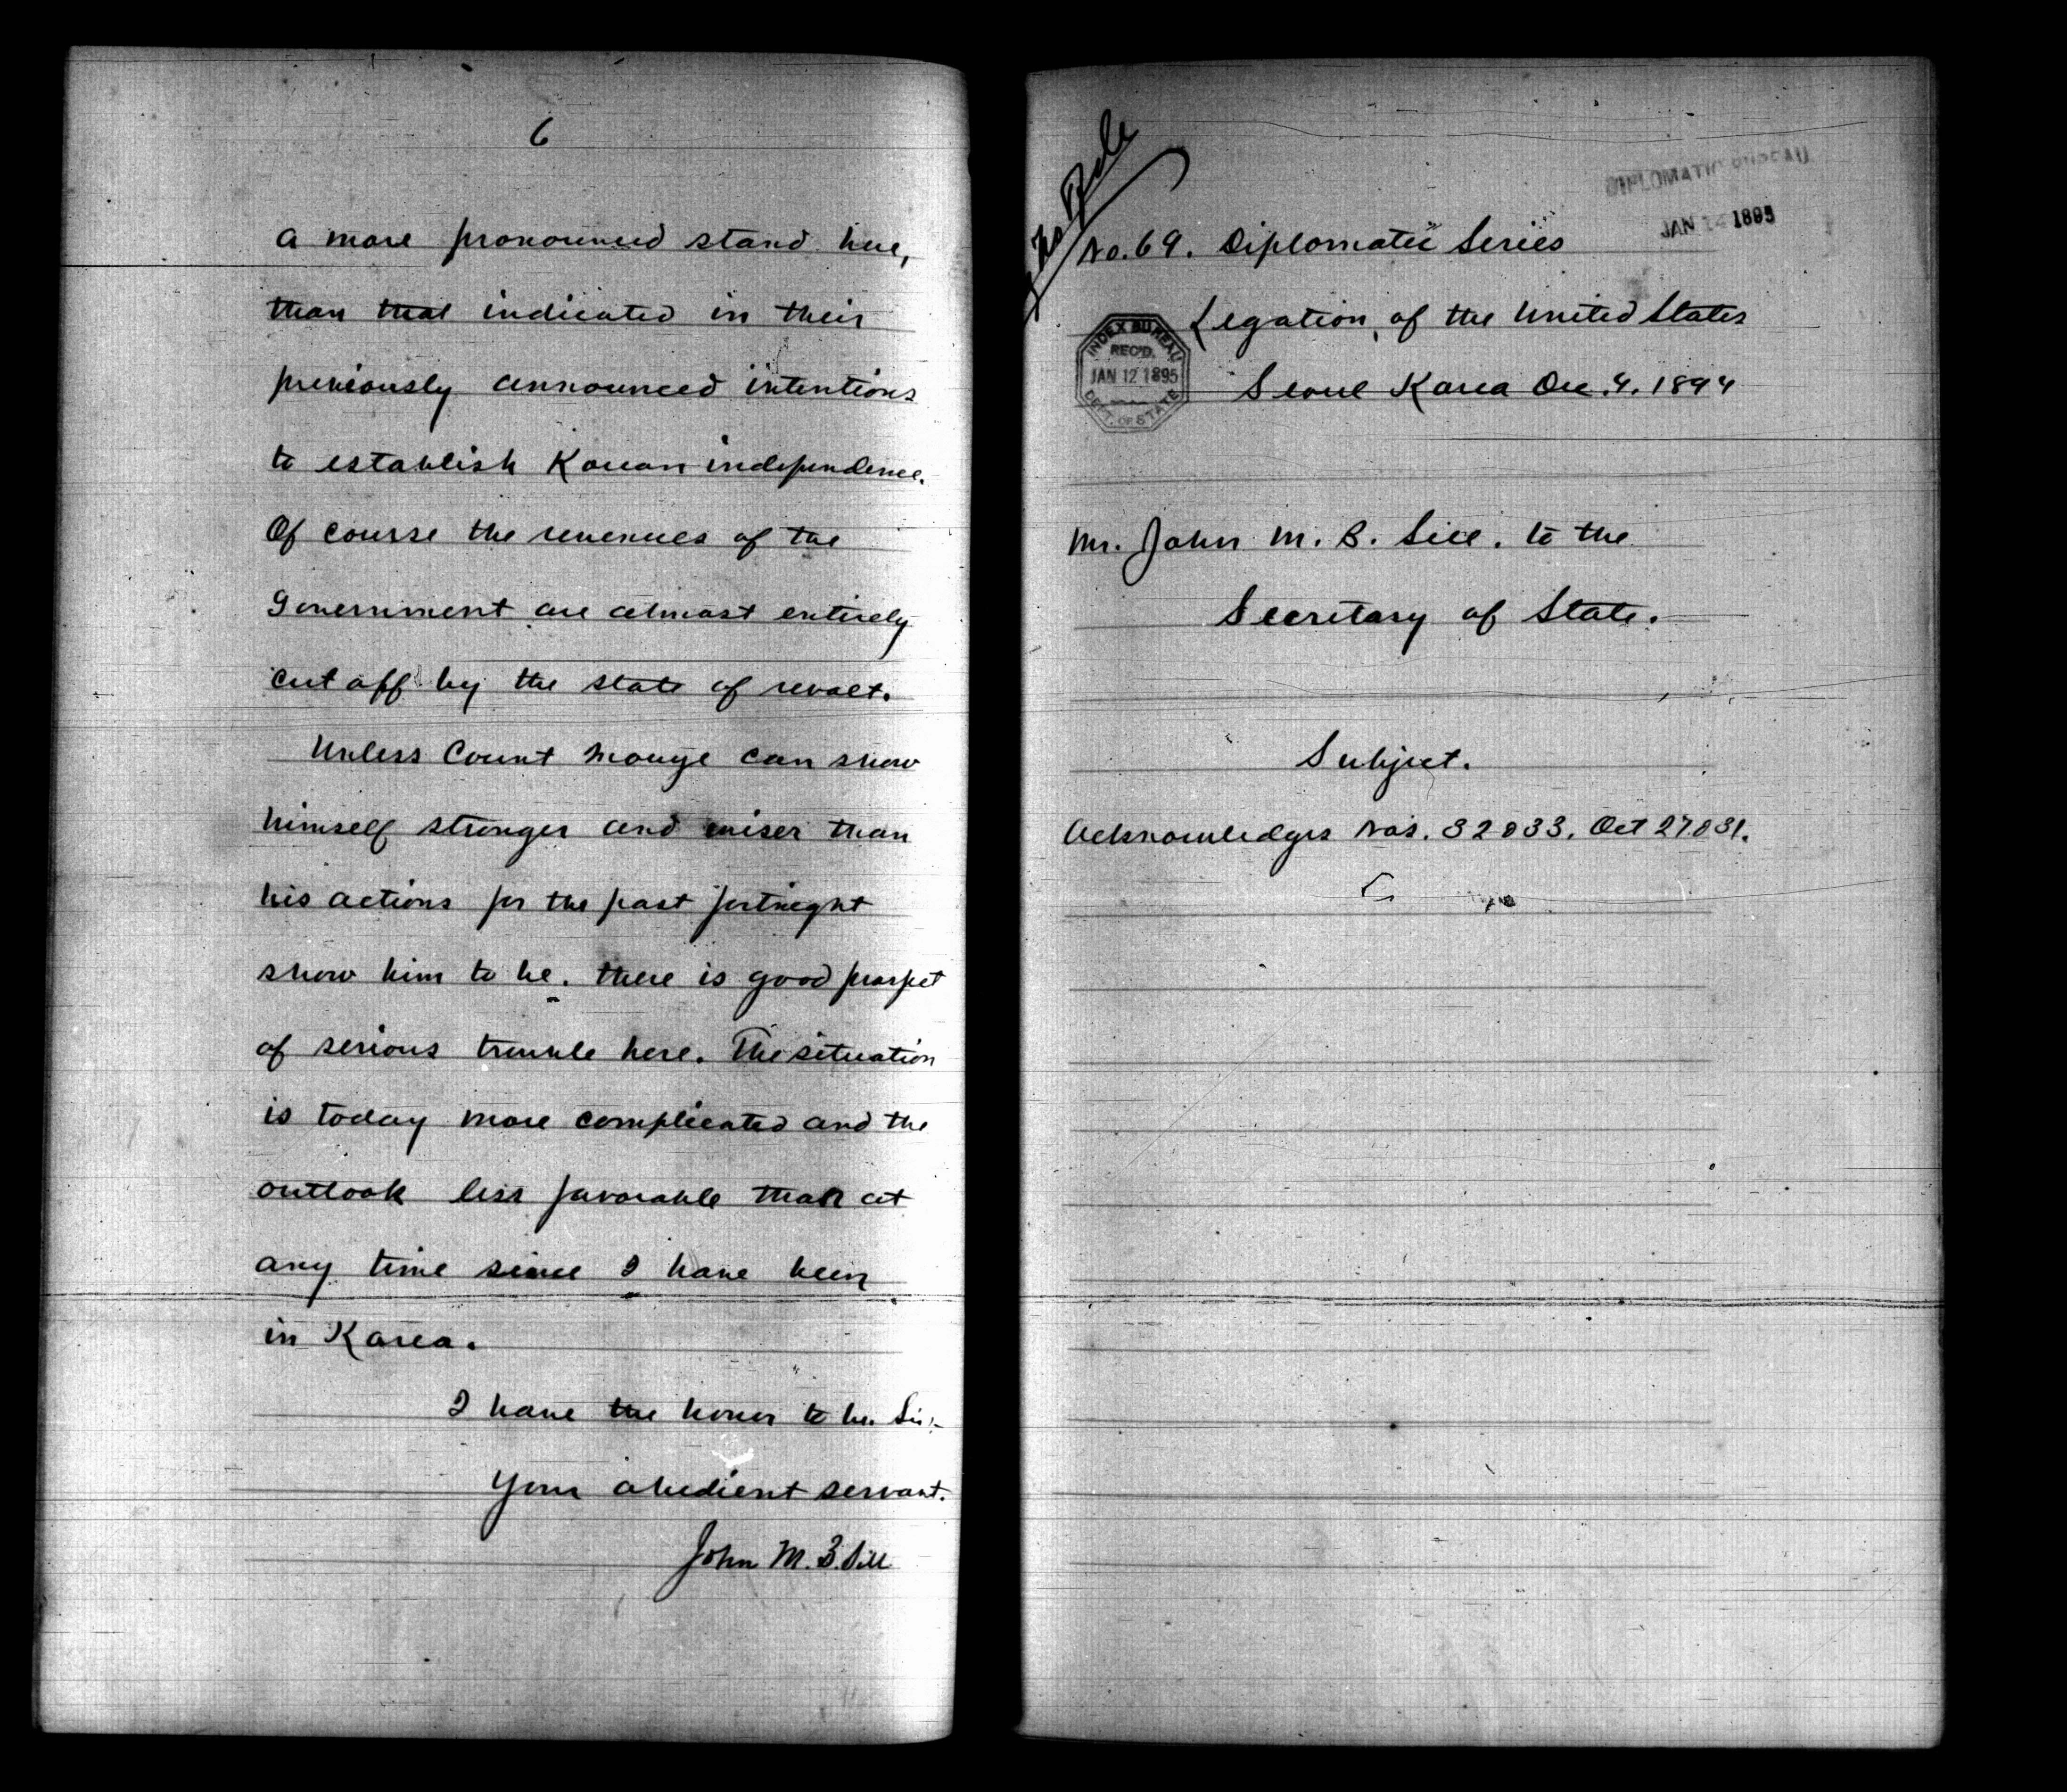 6
a more pronounced stand here,
than that indicated in their
previously announced intentions
to establish Korean independence.
Of course the revenues of the
Government are almost entirely
cut off by the state of revolt.
Unless Count Inouye can show
himself stronger and wiser than
his actions for the past fortnight
show him to be. there is good prospect
of serious trouble here. The situation
is today more complicated and the
outlook less favorable than at
any time since I have been
in Korea.
I have the honor to be. Sir:-
Your obedient servant.
John M. B. Sill
DIPLOMATIC BUREAU
JAN 14 1895
No. 69. Diplomatic Series
Legation of the United States
INDEX BUREAU
REC'D.
JAN 12 1895
DEPT. OF STATE
Seoul Korea Dec. 4. 1894
Mr. John M. B. Sill. to the
Secretary of State.
Subject.
Acknowledges Nos. 32 & 33. Oct 27 & 31.